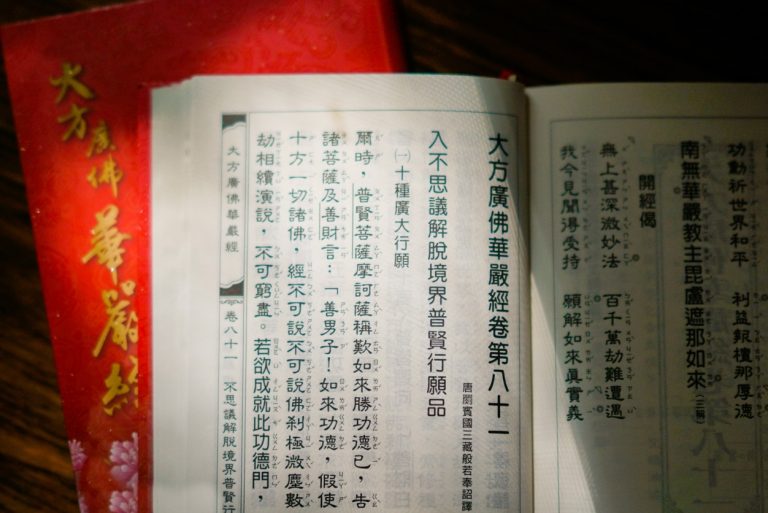 功勳祈世界和平　利益報檀那厚德
南無華嚴教主毘盧遮那如來(三稱)
開經偈
無上甚深微妙法　百千萬劫難遭遇
我今見聞得受持　願解如來眞實義
大方廣佛華嚴經卷第八十一
唐罽賓國三藏般若奉詔譯
入不思議解脫境界普賢行願品
㈠十種廣大行願
爾時，普賢菩薩摩訶薩稱歎如來勝功德已，告
諸菩薩及善財言：「善男子！如來功德，假使
十方一切諸佛，經不可說不可說佛剎極微塵數
劫相續演說，不可窮盡。若欲成就此功德門，
大方廣佛華嚴經　卷八十一　不思議解脫境界普賢行
大方廣佛華嚴經